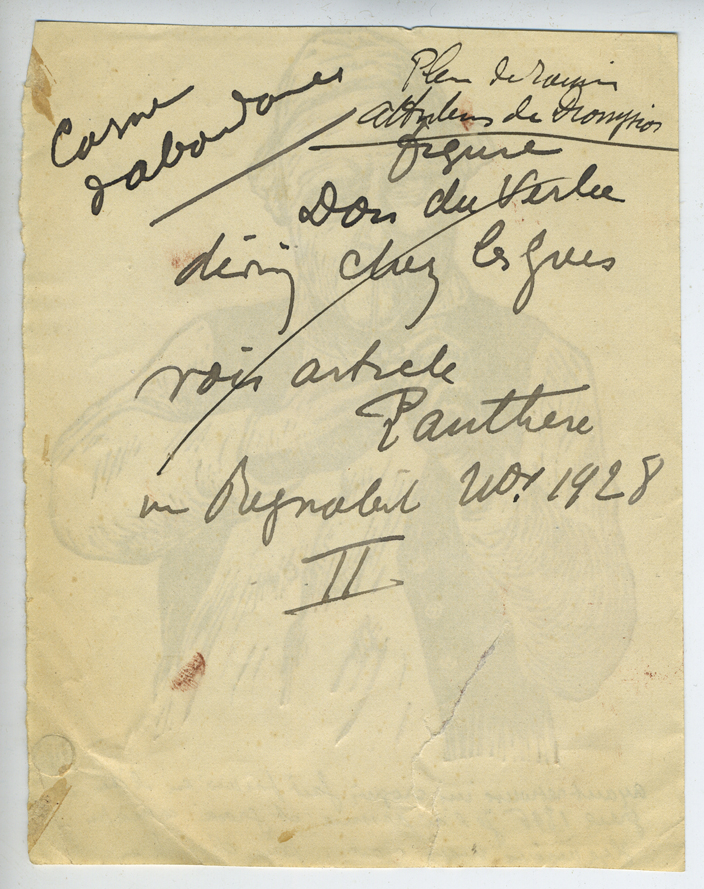 Corne
d'abondance
Plein de raisin
attributs de Dionysios
figure
Don du Verbe
divin chez les grecs
voir article
Panthere
in Regnabit Nov. 1928
II